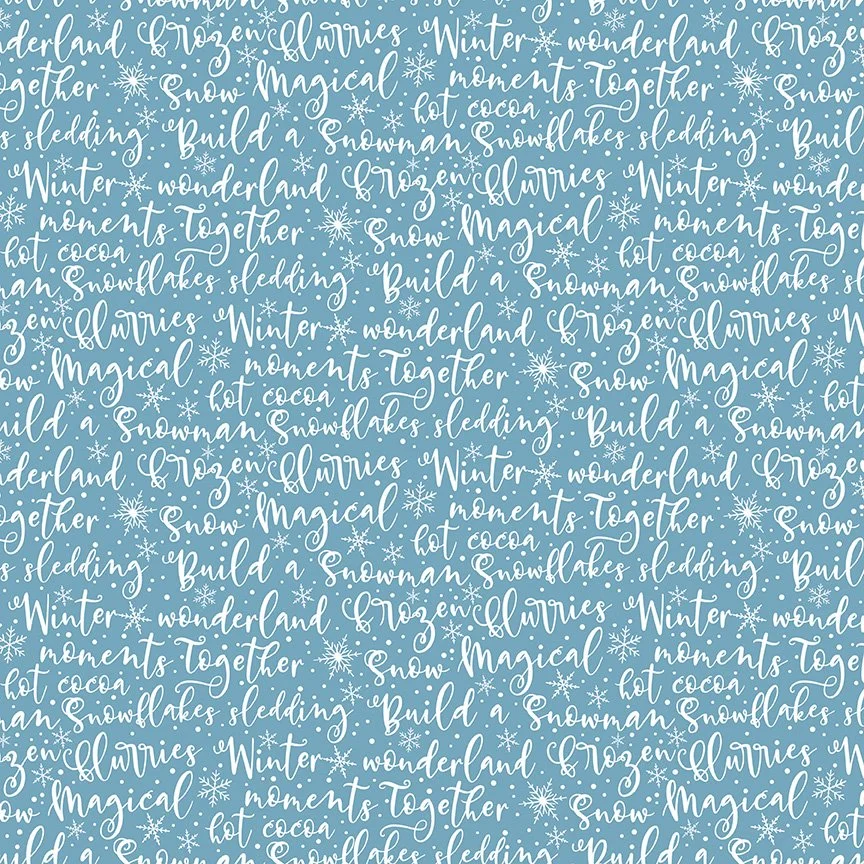 nderland Frozen Flurries Winter wonderland Frozen
ogether Snow Magical moments Together Snow
hot cocoa
s sledding Build a Snowman Snowflakes sledding Buil
Winter wonderland Frozen Flurries Winter wonde
moments Together Snow Magical moments Toge
hot cocoa hot cocoa
man Snowflakes sledding Build a Snowman Snowflakes sl
zen Flurries Winter wonderland Frozen Flurries W
ow Magical moments Together Snow Magical
hot cocoa hot
uild a Snowman Snowflakes sledding Build a Snowman
nderland Frozen Flurries Winter wonderland Frozen
ogether Snow Magical moments Together Snow
hot cocoa
s sledding Build a Snowman Snowflakes sledding Buil
Winter wonderland Frozen Flurries Winter wonde
moments Together Snow Magical moments Toge
hot cocoa hot cocoa
man Snowflakes sledding Build a Snowman Snowflakes sl
zen Flurries Winter wonderland Frozen Flurries W
ow Magical moments Together Snow Magical
hot cocoa hot
uild a Snowman Snowflakes sledding Build a Snowman